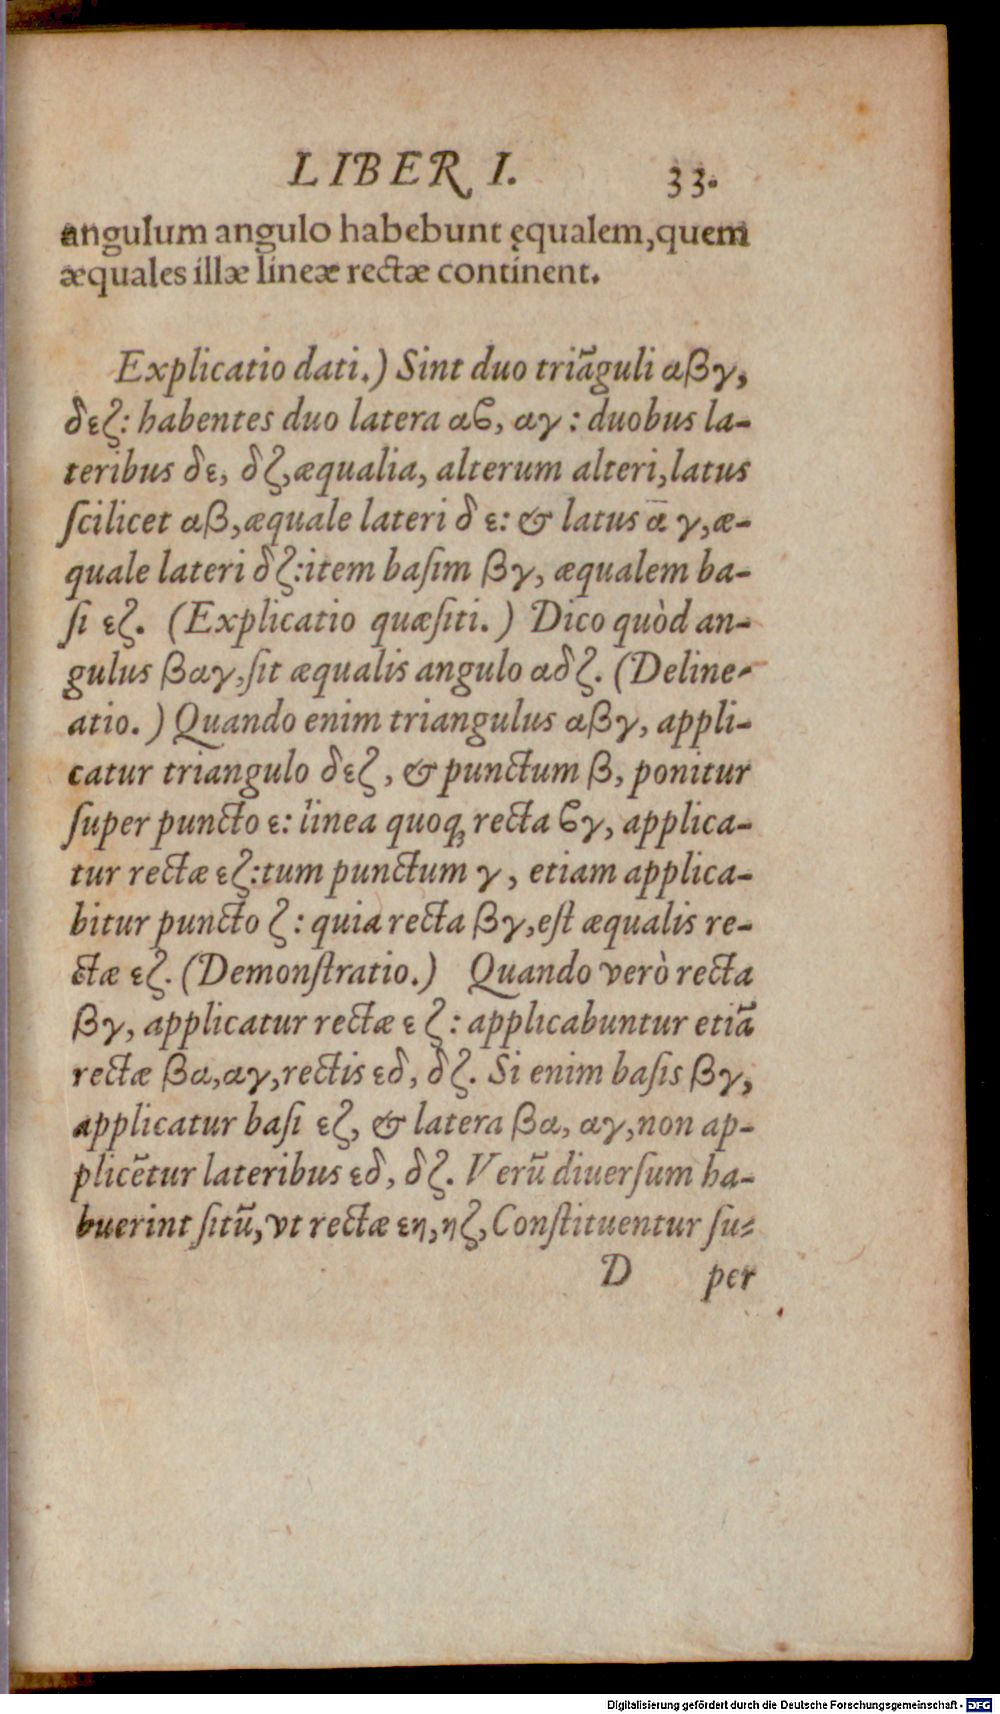 LIBER I. 33.
angulum angulo habebunt ęqualem, quem
æquales illæ lineæ rectæ continent.
Explicatio dati.) Sint duo triãguli αβγ,
δεζ: habentes duo latera αϐ, αγ: duobus la-
teribus δε, δζ, æqualia, alterum alteri, latus
ſcilicet αβ, æquale lateri δ ε: & latus α̅ γ, æ-
quale lateri δζ: item baſim βγ, æqualem ba-
ſi εζ. (Explicatio quæſiti.) Dico quòd an-
gulus βαγ, ſit æqualis angulo αδζ. (Deline-
atio.) Quando enim triangulus αβγ, appli-
catur triangulo δεζ, & punctum β, ponitur
ſuper puncto ε: linea quoqꝫ recta ϐγ, applica-
tur rectæ εζ: tum punctum γ, etiam applica-
bitur puncto ζ: quia recta βγ, eſt æqualis re-
ctæ εζ. (Demonſtratio.) Quando verò recta
βγ, applicatur rectæ ε ζ: applicabuntur etiã
rectæ βα, αγ, rectis εδ, δζ. Si enim baſis βγ,
applicatur baſi εζ, & latera βα, αγ, non ap-
plicẽtur lateribus εδ, δζ. Verũ diuerſum ha-
buerint ſitũ, vt rectæ εη, ηζ, Conſtituentur ſu-
D per
Digitalisierung gefördert durch die Deutsche Forschungsgemeinschaft - DFG